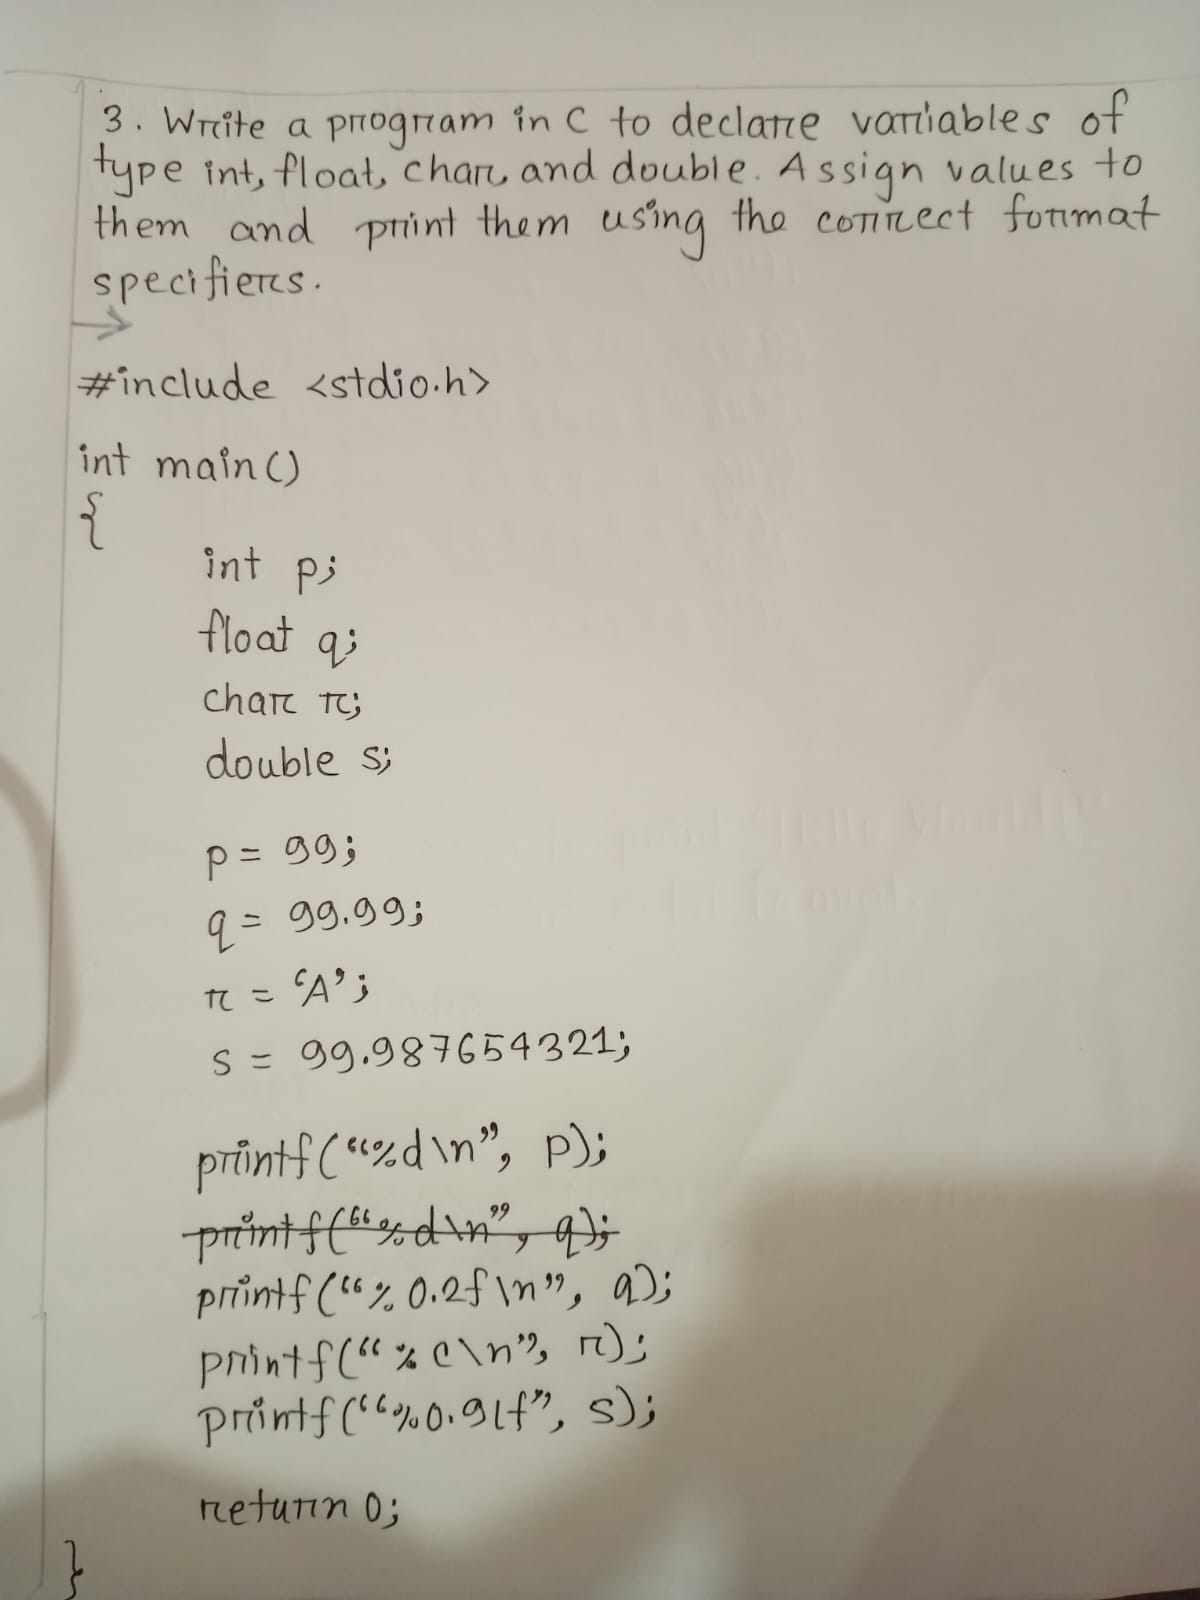 3. Write a program in C to declare variables of
type int, float, char, and double. Assign values to
them and print them using the correct format
specifiers.
→
#include <stdio.h>
int main()
{
int p;
float q;
char r;
double s;
p = 99;
q = 99.99;
r = ‘A’;
s = 99.987654321;
printf(“%d\n”, p);
printf(“%d\n”, q);
printf(“%0.2f\n”, q);
printf(“%c\n”, r);
printf(“%0.9lf”, s);
return 0;
}